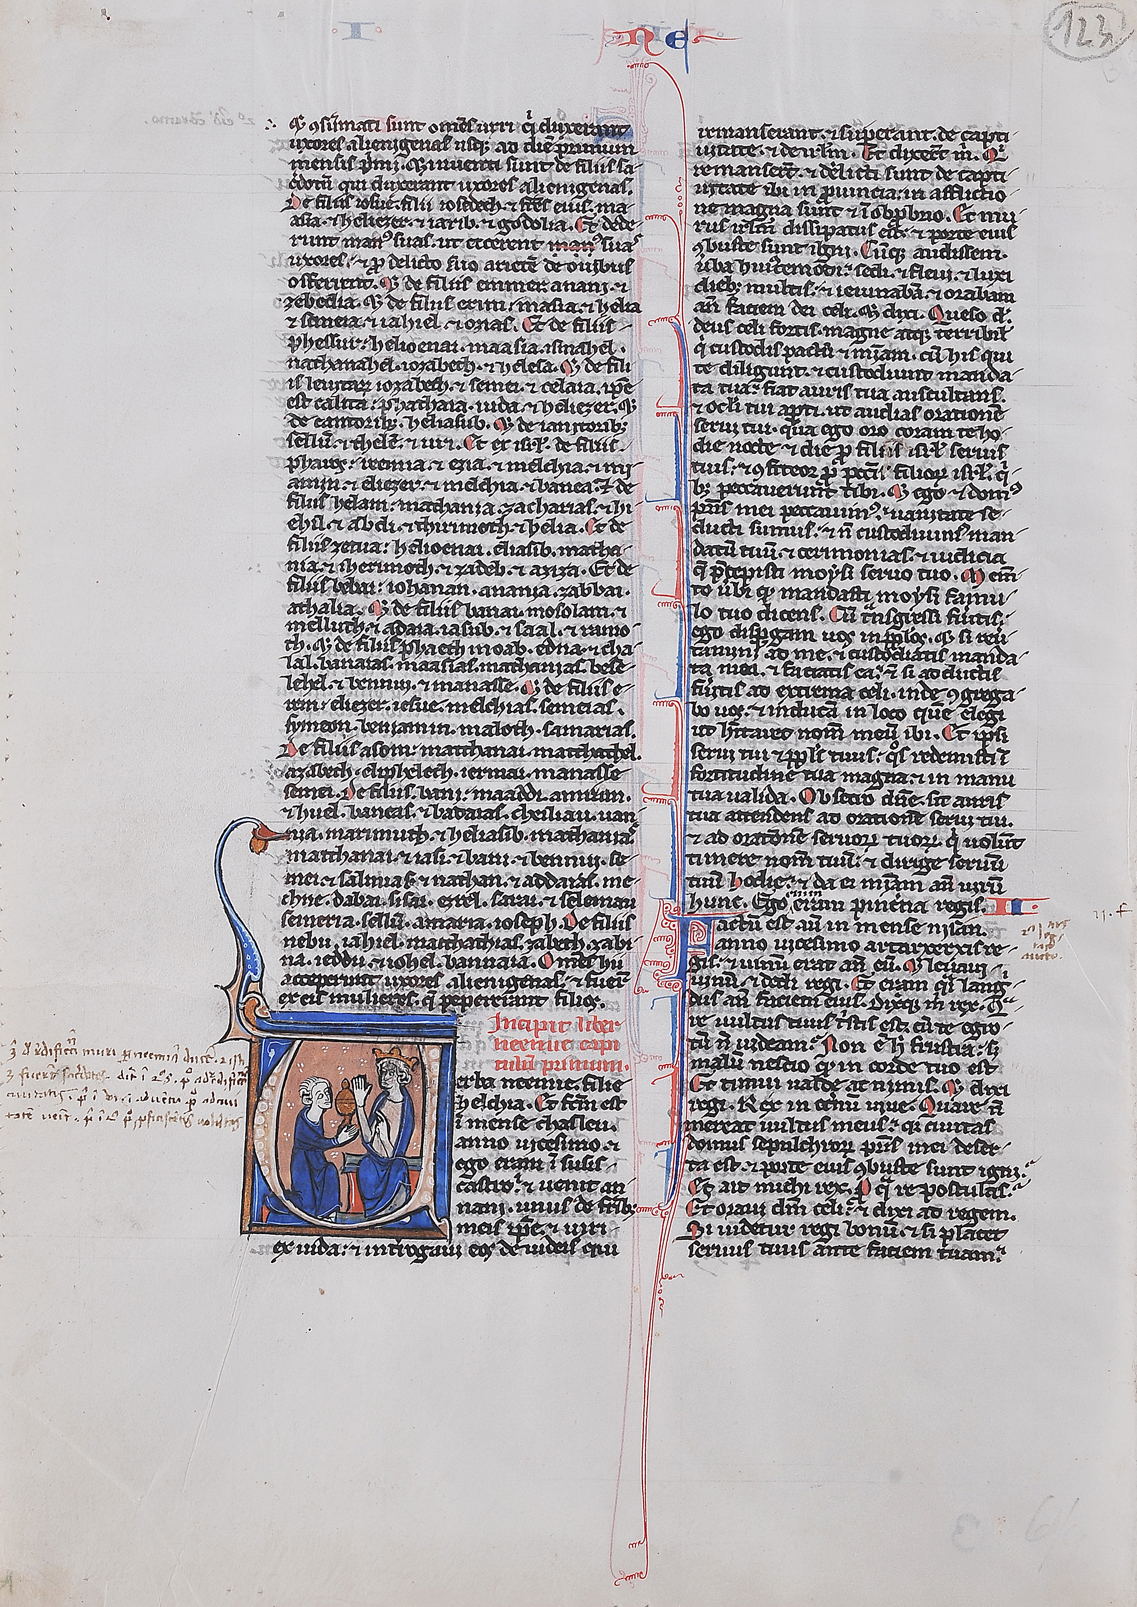 Ne
123
⁊ ɔsūmati sunt om̅es uiri q̇ duxerant
uxores alienigenas usq; ad diē primum
mensis p̄mi. Et inuenti sunt de filiis sa
cdotū qui duxerant uxores alienigenas.
De filiis iosue. filii iosedech ⁊ frēs eius ma
asia. ⁊ heliezer. ⁊ iarib. ⁊ godolia. Et dede
runt man⁹ suas. ut eicerent man⁹ suas
uxores. ⁊ p delicto suo arietē de ouibus
offerrent. Et de filiis emmer anani. ⁊
zebedia. Et de filiis erim: masia. ⁊ helia
⁊ semeia. ⁊ iahiel. ⁊ onias. Et de filiis
phessur: helioenai. maasia. ismahel.
nathanahel. iozabeth. ⁊ helesa. Et de fili
is leuitaꝝ iozabeth. ⁊ semei. ⁊ celaia. ip̄e
est calita: phathaia. iuda. ⁊ heliezer. Et
de cantorib; heliasub. Et de ianitorib;
sellū. ⁊ thelē. ⁊ uri. Et ex isrl̄. de filiis
pharos: remia. ⁊ ezia. ⁊ melchia. ⁊ mi
amin. ⁊ eliezer. ⁊ melchia. ⁊ banea. Et de
filiis helam: mathania. zacharias. ⁊ hi
ehil. ⁊ abdi. ⁊ ihirimoth. ⁊ helia. Et de
filiis zetua: helioenai. eliasib. matha
nia. ⁊ iherimoth. ⁊ zadeb. ⁊ aziza. Et de
filiis bebai: iohanan. anania. zabbai.
athalia. Et de filiis banai. mosolam. ⁊
melluch. ⁊ adaia. iasub. ⁊ saal. ⁊ ramo
th. Et de filiis phaeth moab. edna. ⁊ cha
lal. banaias. maasias. mathanias. bese
lehel. ⁊ bennui. ⁊ manasse. Et de filiis e
rem: eliezer. iesue. melchias. semeias.
symeon. beniamin. maloth. samarias.
De filiis asom: matthanai. matthathel.
zabeth. eliphelech. iermai. manasse
semei. De filiis bani: maaddi. amram.
⁊ huel. baneas. ⁊ badaias. cheiliau. uan
nia. marimuth. ⁊ heliasib. mathanias.
matthanai. ⁊ iasi. ⁊ bani. ⁊ bennui. se
mei. ⁊ salmias. ⁊ nathan. ⁊ addaias. me
chne. dabai. sisai. sarai. ⁊ seleman
semeria. sellū. amaria. ioseph. De filiis
nebu. iahiel. matthathias. zabeth. zabi
na. ieddu. ⁊ iohel. bannaia. Om̅es hii
acceperunt uxores alienigenas. ⁊ fuer̄
ex eis mulieres. q̄ pepererant filios.
Incipit liber
neemie capi
tulū primum.
Verba neemie. filii
helchia. Et fctm̄ est
ī mense chasleu.
anno uicesimo. ⁊
ego eram ī susis
castro. ⁊ uenit an
nani. unus de frīb;
meis ip̄e. ⁊ uiri
ex iuda: ⁊ interrogaui eos de iudeis qui
remanserant. ⁊ supererant. de capti
uitate. ⁊ de irl̄m. Et dixer̄t m̄. Qui
remanser̄t. ⁊ delicti sunt de capti
uitate ibi in prouincia: in afflictio
ne magna sunt ⁊ ī obprobrio. Et mu
rus irl̄m dissipatus est. ⁊ porte eius
ɔbuste sunt igni. Cūq; audissem
uerba huiuscemodi: sedi. ⁊ fleui. ⁊ luxi
dieb; multis. ⁊ ieiunabā. ⁊ orabam
an̄ faciem dei celi. Et dixi. Queso dn̄e
deus celi fortis. magne atq; terribil̄
q̇ custodis pactū. ⁊ mīam. cū his qui
te diligunt. ⁊ custodiunt manda
ta tua: fiat auris tua auscultans.
⁊ oc̄li tui apti. ut audias orationē
serui tui. quā ego oro coram te ho
die nocte ⁊ die p filiis isrl̄. seruis
tuis. ⁊ ɔfiteor p pctīs filioꝝ isrl̄. q̇
b; peccauerunt tibi. Et ego ⁊ dom⁹
pr̄is mei peccauim⁹. uanitate se
ducti sumus. ⁊ n̄ custodiuim⁹ man
datū tuū. ⁊ cerimonias. ⁊ iudicia
q̄ p̄cepisti moysi seruo tuo. Mem̄
to uerbi qđ mandasti moysi famu
lo tuo dicens. Cū tn̄sgressi fuitis:
ego dispgam uos in pplos. Et si reu
tamini ad me. ⁊ custodiatis manda
ta mea. ⁊ faciatis ea: ⁊ si abducti
fuitis ad extrema celi. inde ɔgrega
bo uos. ⁊ inducā in loco quē elegi
ut hītaret nom̄ meū ibi. Et ipsi
serui tui ⁊ pplus tuus: q̄s redemisti ī
fortitudine tua magna. ⁊ in manu
tua ualida. Obsecro dn̄e. sit auris
tua attendens ad orationē serui tui.
⁊ ad orationē seruoꝝ tuoꝝ. q̇ uolūt
timere nom̄ tuū. ⁊ dirige seruū
tuū hodie. ⁊ da ei mīam an̄ uirū
hunc. Ego enim eram pincerna regis.
Factū est au in mense nisan.
anno uicesimo artarxerxis re
gis. ⁊ uinū erat an̄ eū. Et leuaui
uinū. ⁊ dedi regi. Et eram q̄i lang
dus an̄ faciem eius. Dixitq; m̄ rex. Qua
re uultus tuus tristis est: cū te egro
tū n̄ uideam? Non ē h̄ frustra: s;
malū nescio qđ in corde tuo est
Et timui ualde ac nimis. Et dixi
regi. Rex in etnū uiue. Quare n̄
mereat uultus meus: q̄ ciuitas
domus sepulchroꝝ pr̄is mei deser
ta est. ⁊ porte eius ɔbuste sunt igni.
Et ait michi rex. P q̄ re postulas.
Et oraui dm̄ celi. ⁊ dixi ad regem.
Si uidetur regi bonū. ⁊ si placet
seruus tuus ante faciem tuam.